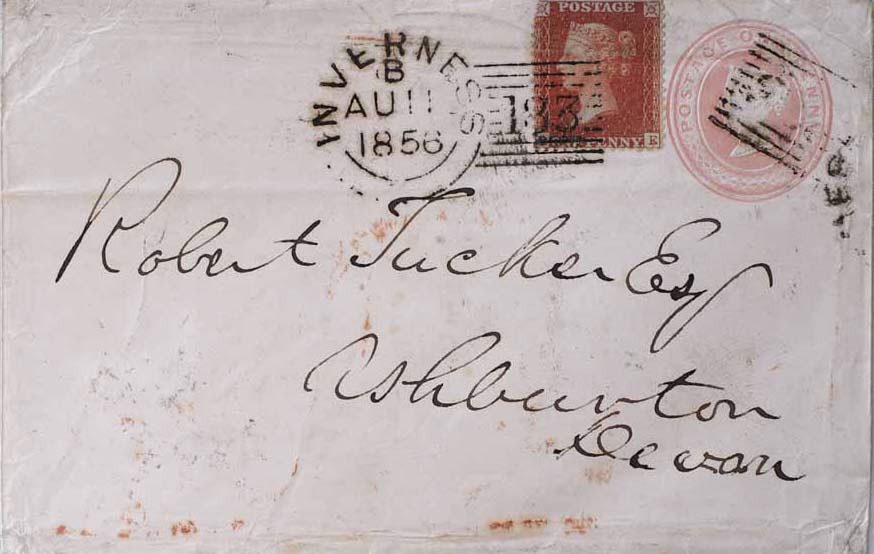 POSTAGE
POSTAGE O PENNY
INVERNESS
B
AU 11
1856
183
PENNY
E
Robert Tucker Esq
Ashburton
Devon